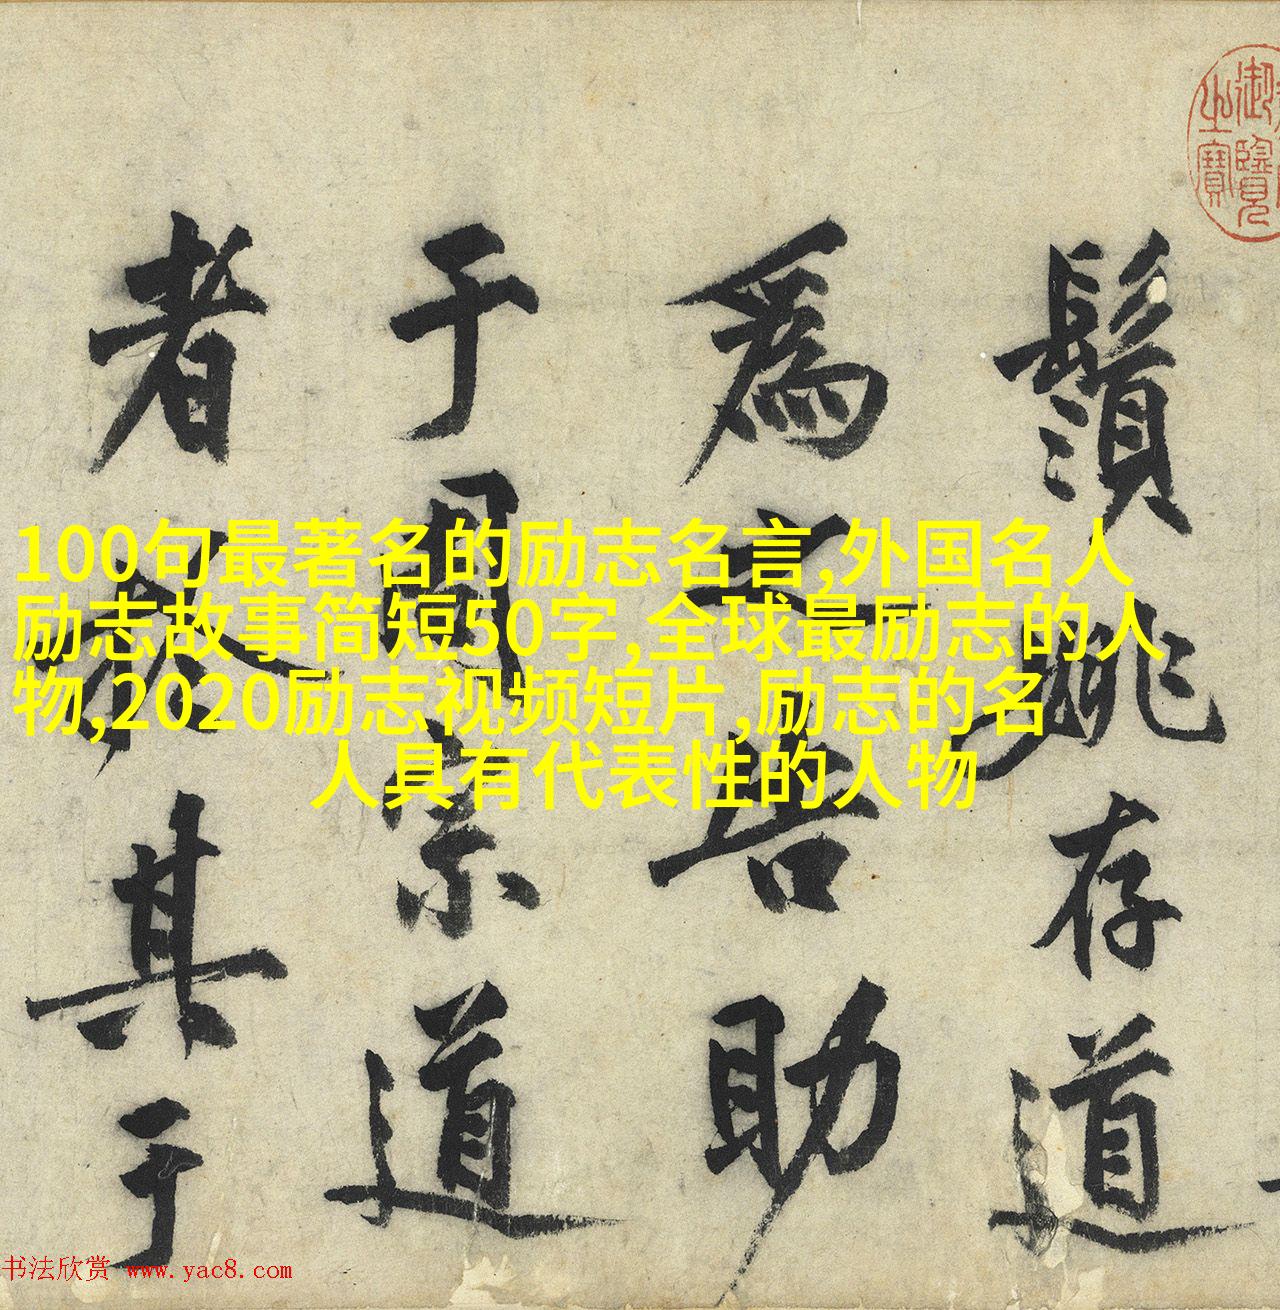 御覽
之寶
鬚姚存道
爲文告助
于周宗道
者其于
100句最著名的励志名言,外国名人
励志故事简短50字,全球最励志的人
物,2020励志视频短片,励志的名
人具有代表性的人物
书法欣赏 www.yac8.com